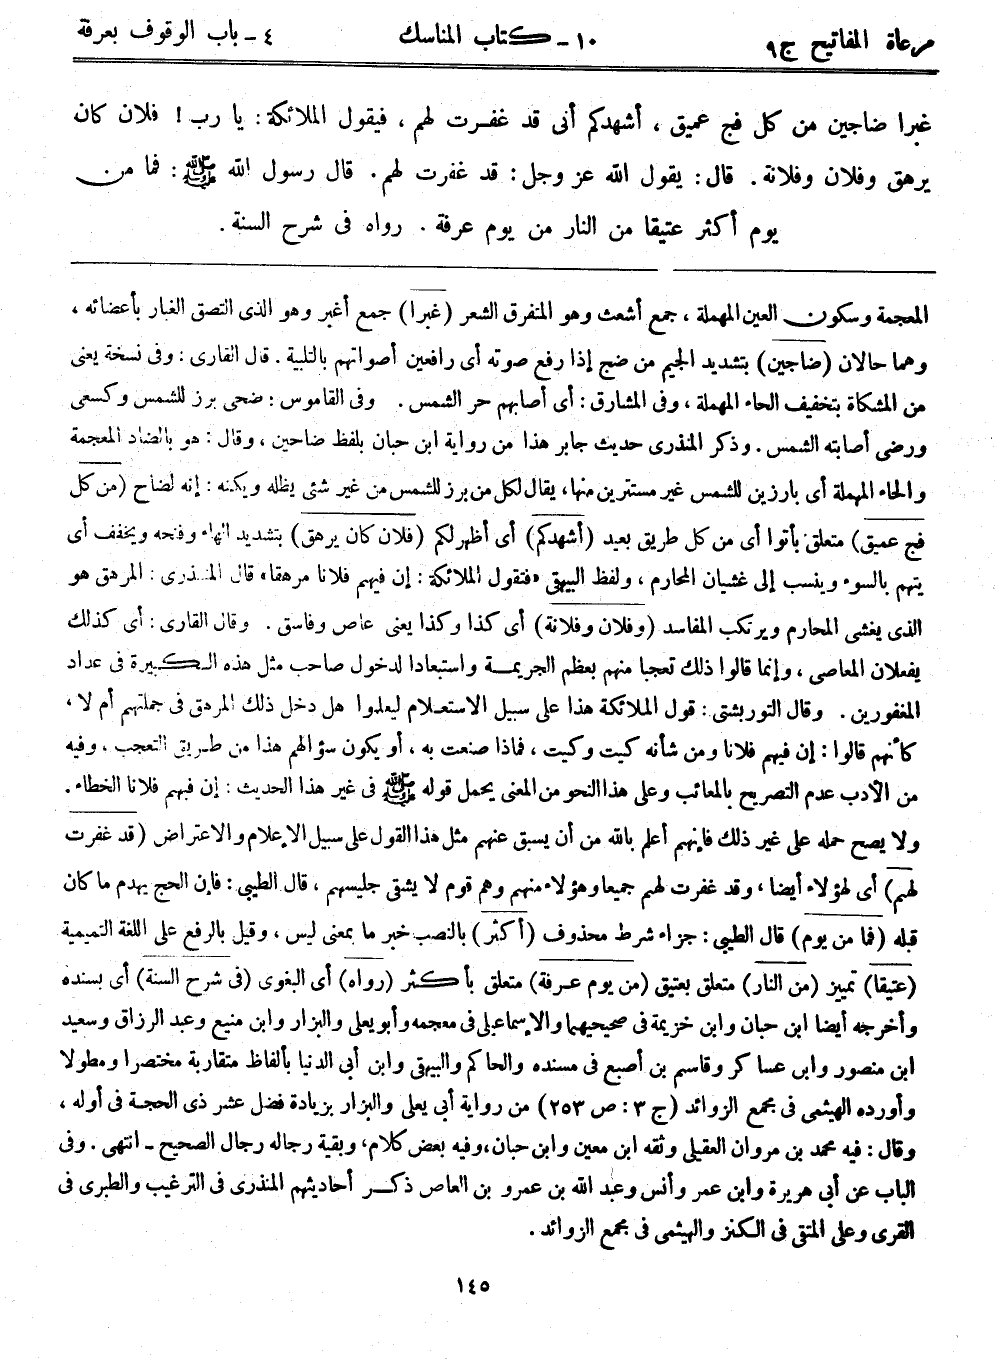 مرعاة المفاتيح ج٩ ١٠ - كتاب المناسك ٤ - باب الوقوف بعرفة
غبرا ضاجين من كل فج عميق ، أشهدكم أنى قد غفرت لهم ، فيقول الملائكة : يا رب ! فلان كان
يرهق وفلان وفلانة . قال : يقول الله عز وجل : قد غفرت لهم . قال رسول الله ﷺ : فما من
يوم أكثر عتيقا من النار من يوم عرفة . رواه فى شرح السنة .
المعجمة وسكون العين المهملة ، جمع أشعث وهو المتفرق الشعر (غبرا) جمع أغبر وهو الذى التصق الغبار بأعضائه ،
وهما حالان (ضاجين) بتشديد الجيم من ضج إذا رفع صوته أى رافعين أصواتهم بالتلبية . قال القارى : وفى نسخة يعنى
من المشكاة بتخفيف الحاء المهملة ، وفى المشارق : أى أصابهم حر الشمس . وفى القاموس : ضحى برز للشمس وكسعى
ورضى أصابته الشمس . وذكر المنذرى حديث جابر هذا من رواية ابن حبان بلفظ ضاحين ، وقال : هو بالضاد المعجمة
والحاء المهملة أى بارزين للشمس غير مستترين منها، يقال لكل من برز للشمس من غير شئ يظله ويكنه : إنه لضاح (من كل
فج عميق) متعلق بأتوا أى من كل طريق بعيد (أشهدكم) أى أظهر لكم (فلان كان يرهق) بتشديد الهاء وفتحه ويخفف أى
يتهم بالسوء وينسب إلى غشيان المحارم ، ولفظ البيهقى «فتقول الملائكة : إن فيهم فلانا مرهقا» قال المنذرى : المرهق هو
الذى يغشى المحارم ويرتكب المفاسد (وفلان وفلانة) أى كذا وكذا يعنى عاص وفاسق . وقال القارى : أى كذلك
يفعلان المعاصى ، وإنما قالوا ذلك تعجبا منهم بعظم الجريمة واستبعادا لدخول صاحب مثل هذه الكبيرة فى عداد
المغفورين . وقال التوربشتى : قول الملائكة هذا على سبيل الاستعلام ليعلموا هل دخل ذلك المرهق فى جملتهم أم لا ،
كأنهم قالوا : إن فيهم فلانا ومن شأنه كيت وكيت ، فماذا صنعت به ، أو يكون سؤالهم هذا من طريق التعجب ، وفيه
من الأدب عدم التصريح بالمعائب وعلى هذا النحو من المعنى يحمل قوله ﷺ فى غير هذا الحديث : إن فيهم فلانا الخطاء .
ولا يصح حمله على غير ذلك فإنهم أعلم بالله من أن يسبق عنهم مثل هذا القول على سبيل الإعلام والاعتراض (قد غفرت
لهم) أى لهؤلاء أيضا ، وقد غفرت لهم جميعا وهؤلاء منهم وهم قوم لا يشقى جليسهم ، قال الطيبى : فإن الحج يهدم ما كان
قبله (فما من يوم) قال الطيبى : جزاء شرط محذوف (أكثر) بالنصب خبر ما بمعنى ليس ، وقيل بالرفع على اللغة التميمية
(عتيقا) تمييز (من النار) متعلق بعتيق (من يوم عرفة) متعلق بأكثر (رواه) أى البغوى (فى شرح السنة) أى بسنده
وأخرجه أيضا ابن حبان وابن خزيمة فى صحيحيهما والإسماعيلى فى معجمه وأبو يعلى والبزار وابن منيع وعبد الرزاق وسعيد
ابن منصور وابن عساكر وقاسم بن أصبع فى مسنده والحاكم والبيهقى وابن أبى الدنيا بألفاظ متقاربة مختصرا ومطولا
وأورده الهيثمى فى مجمع الزوائد (ج ٣ : ص ٢٥٣) من رواية أبى يعلى والبزار بزيادة فضل عشر ذى الحجة فى أوله ،
وقال : فيه محمد بن مروان العقيلى وثقه ابن معين وابن حبان، وفيه بعض كلام، وبقية رجاله رجال الصحيح - انتهى . وفى
الباب عن أبى هريرة وابن عمر وأنس وعبد الله بن عمرو بن العاص ذكر أحاديثهم المنذرى فى الترغيب والطبرى فى
القرى وعلى المتقى فى الكنز والهيثمى فى مجمع الزوائد .
١٤٥